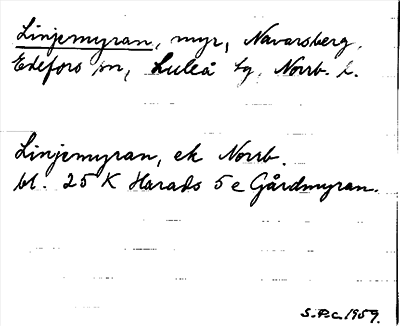 Linjemyran, myr, Navarsberg,
Edefors sn, Luleå tg, Norrb. l.
Linjemyran, ek Norrb.
bl. 25 K Harads 5 e Gårdmyran.
S.P.c. 1959.